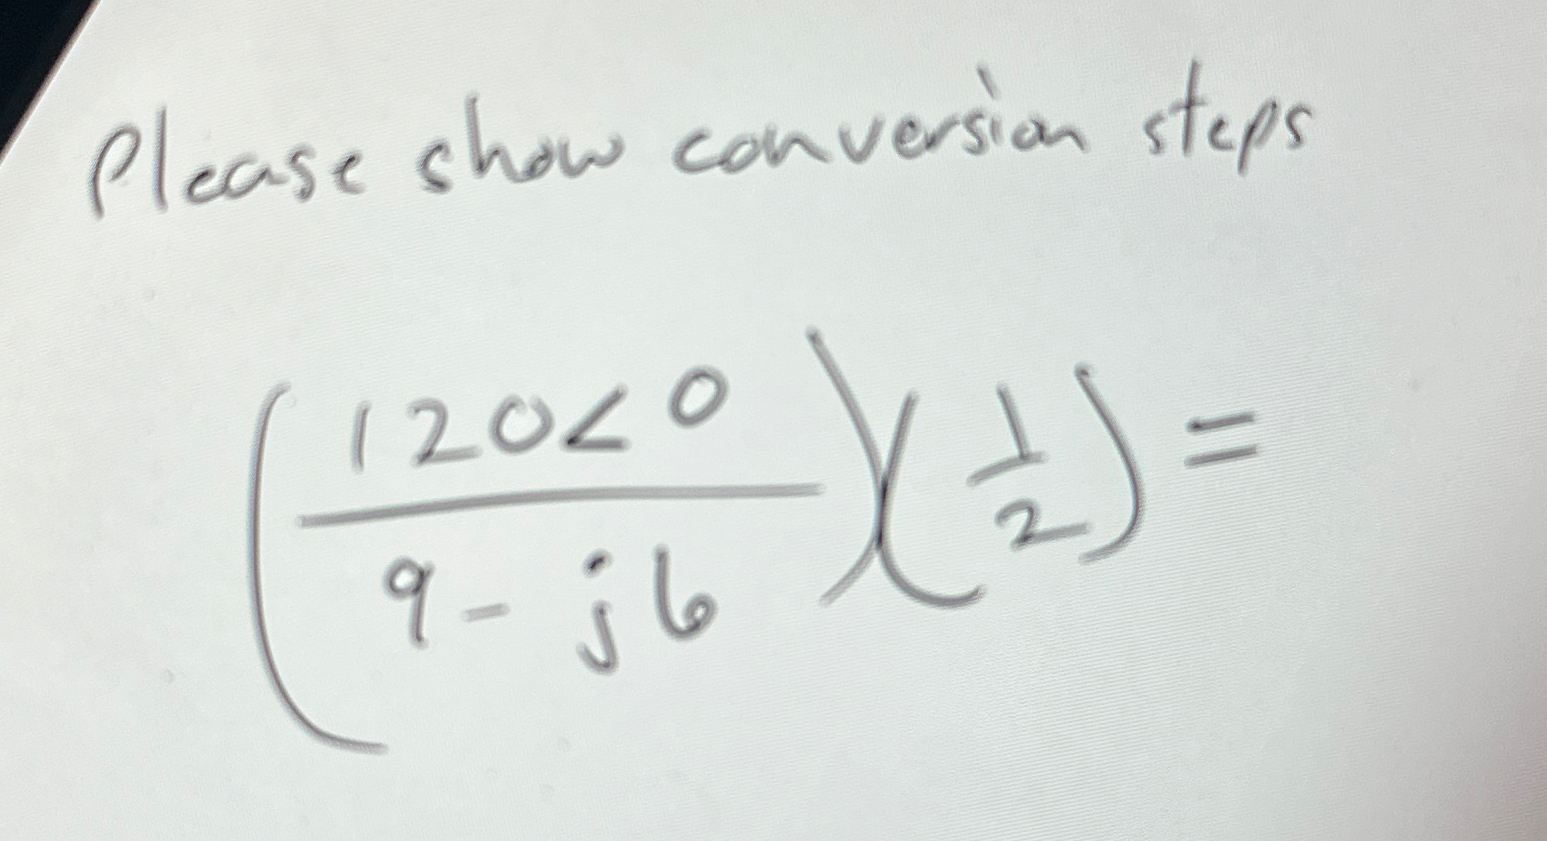 Please show conversion steps
(120<0 / 9-j6)(1/2)=